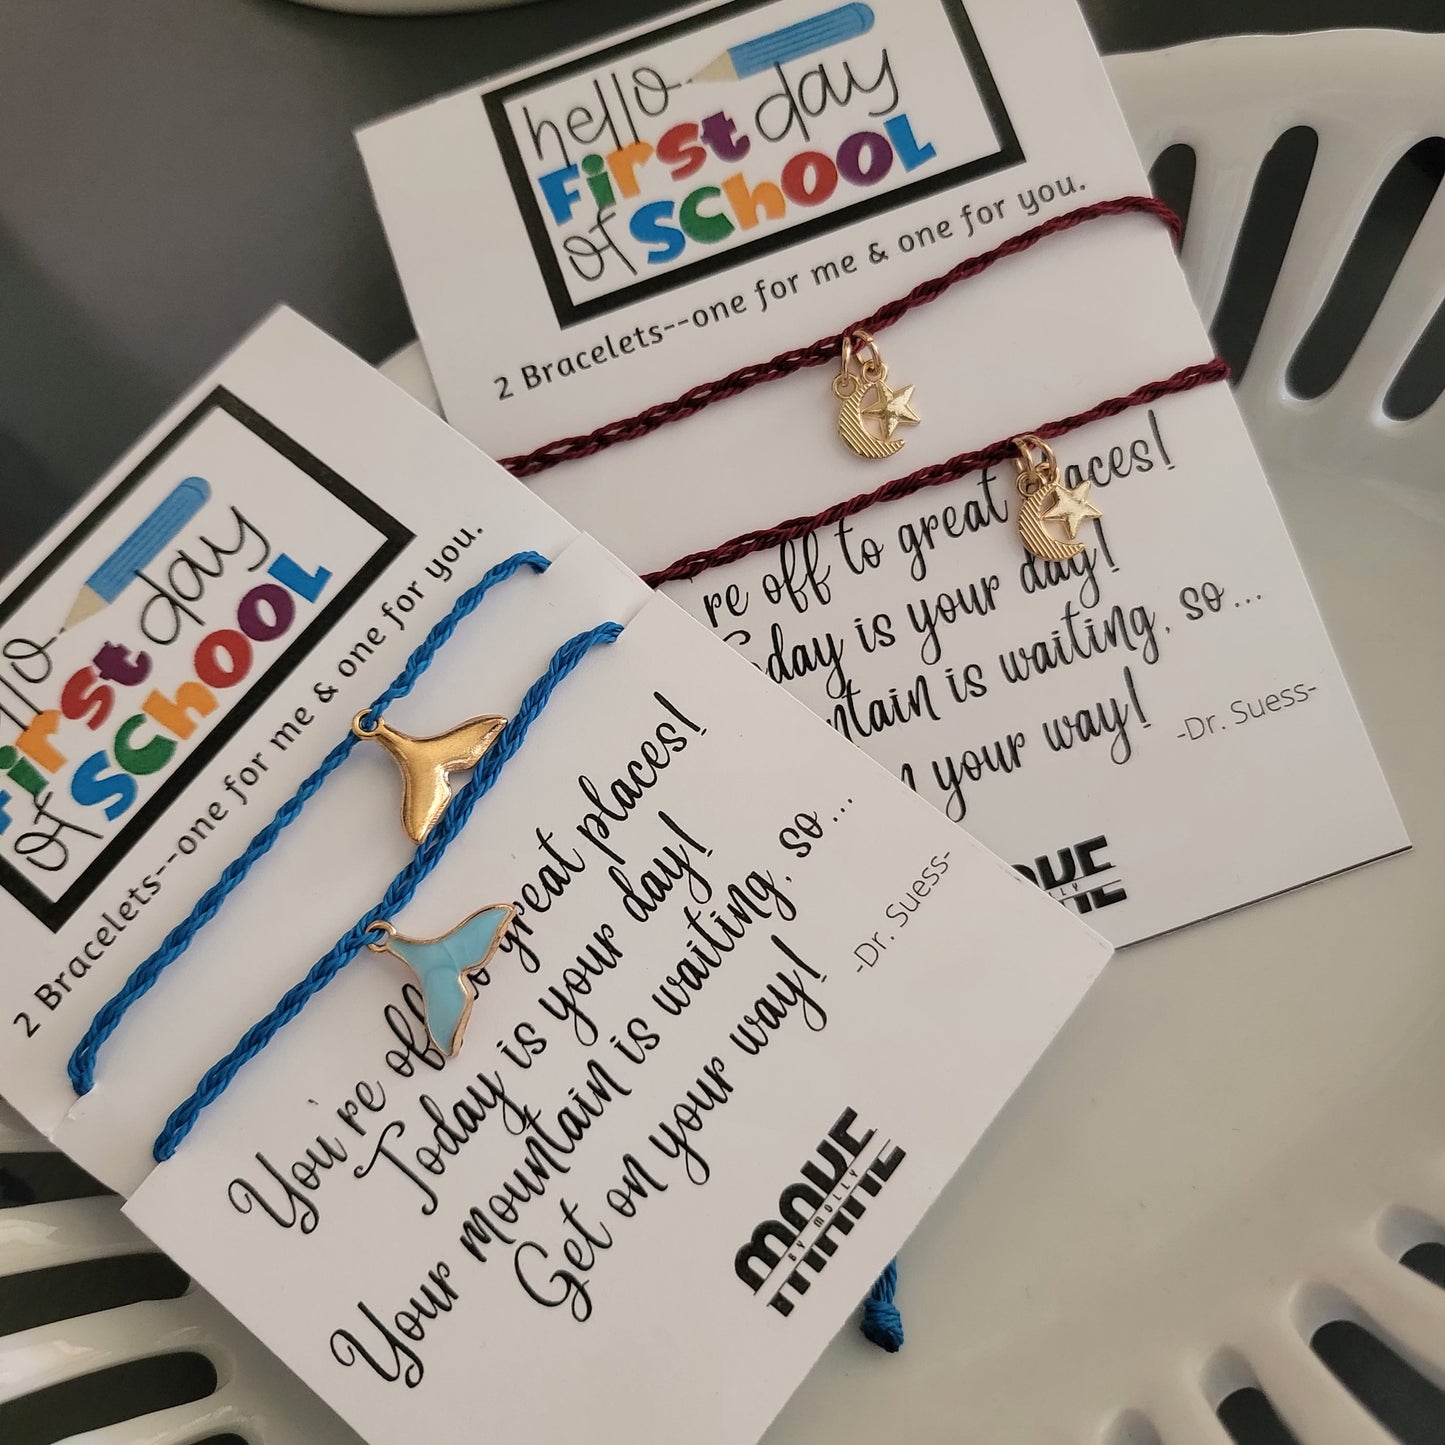 hello
First day
of SCHOOL
2 Bracelets--one for me & one for you.
're off to great
Today is your day!
is waiting, so...
your way!
-Dr. Suess-
hello
First day
of SCHOOL
2 Bracelets--one for me & one for you.
You're off to great places!
Today is your day!
Your mountain is waiting, so...
Get on your way!
-Dr. Suess-
BY MOLLY